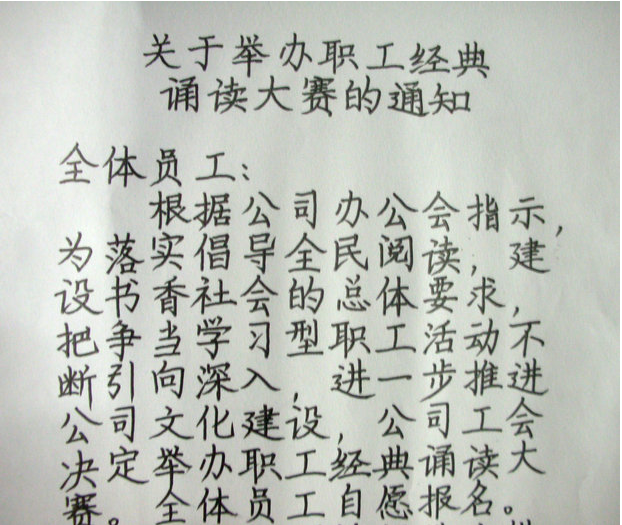 关于举办职工经典
诵读大赛的通知
全体员工：
根据公司办公会指示，
为落实倡导全民阅读，建
设书香社会的总体要求，
把争当学习型职工活动不
断引向深入，进一步推进
公司文化建设，公司工会
决定举办职工经典诵读大
赛。全体员工自愿报名。